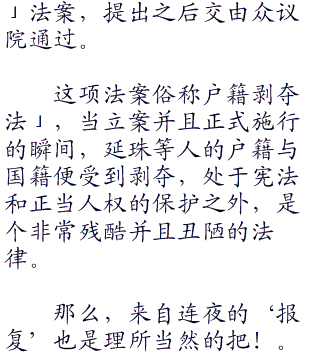 」法案，提出之后交由众议
院通过。
这项法案俗称户籍剥夺
法」，当立案并且正式施行
的瞬间，延珠等人的户籍与
国籍便受到剥夺，处于宪法
和正当人权的保护之外，是
个非常残酷并且丑陋的法
律。
那么，来自连夜的‘报
复’也是理所当然的把！。